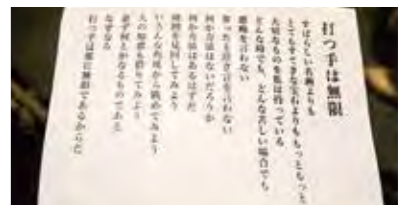 打つ手は無限
すばらしい名画よりも
とてもすてきな宝石よりももっともっと
大切なものを私は持っている
どんな時でも、どんな苦しい場合でも
愚痴を言わない
参ったと泣き言を言わない
何か方法はないだろうか
何か方法はあるはずだ
周囲を見回してみよう
いろんな角度から眺めてみよう
人の知恵も借りてみよう
必ず何とかなるものである
なぜなら
打つ手は常に無限であるからだ